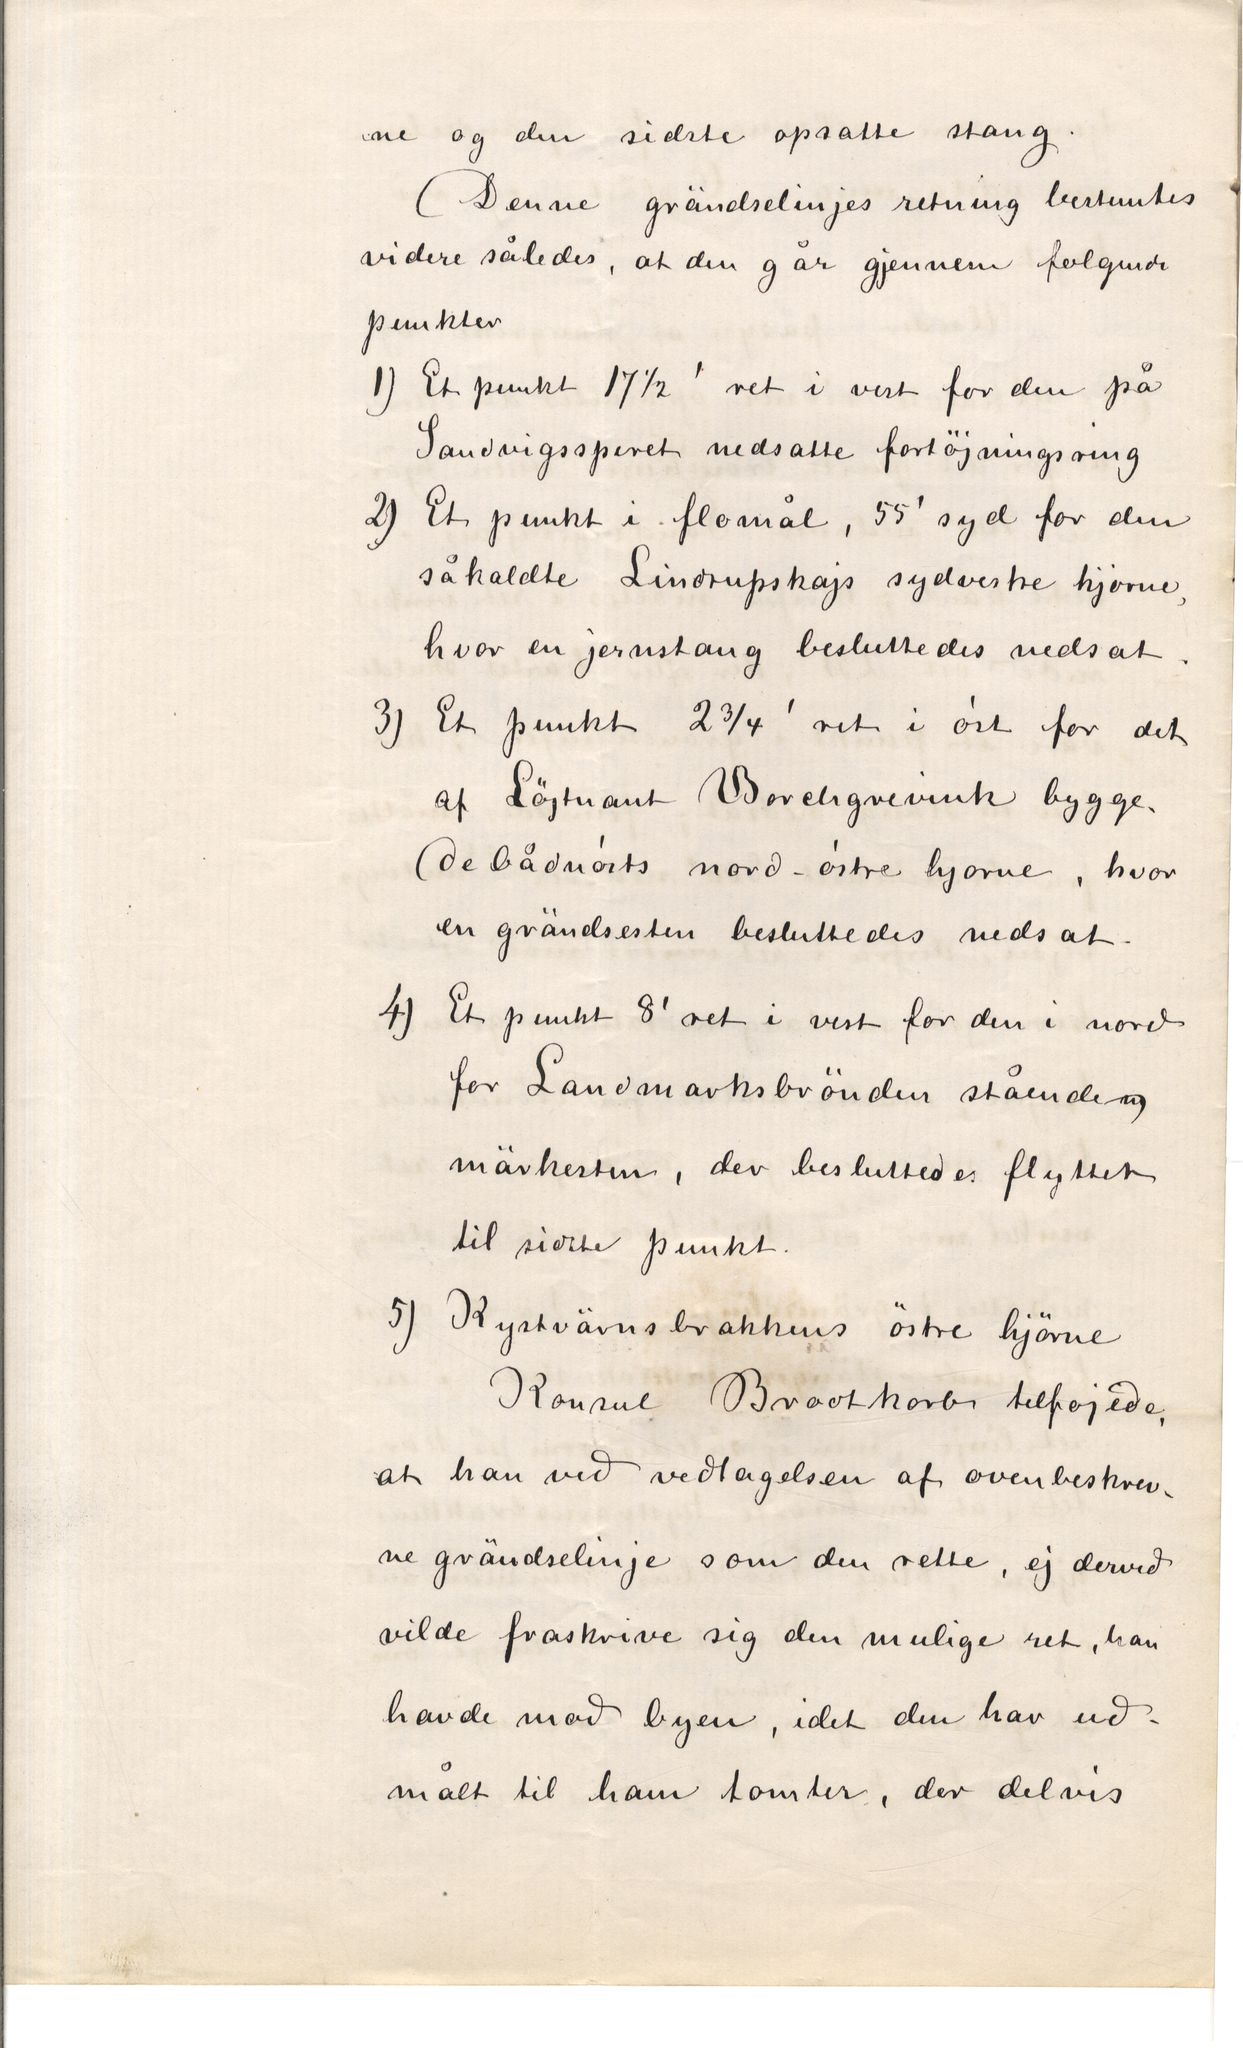 ne og den sidste opsatte stang.
(Denne grändselinjes retning bestemtes
videre således, at den går gjennem følgende
punkter
1) Et punkt 17 1/2 ' ret i vest for den på
Sandvigsspiret nedsatte fortöjningsring
2) Et punkt i flomål, 55' syd for den
såkaldte Lindrupskajs sydvestre hjorne,
hvor en jernstang besluttedes nedsat.
3) Et punkt 2 3/4 ' ret i óst for det
af Löjtnant Borchgrevink bygge-
(de bådnósts nord-óstre hjorne, hvor
en grändsesten besluttedes nedsat.
4) Et punkt 8' ret i vest for den i nord
for Landmarksbrönden stående
märkesten, der besluttedes flyttet
til sidste punkt.
5) Kystvärnsbrakkens östre hjörne
Konsul Brodtkorb tilfojede,
at han ved vedtagelsen af ovenbeskrev-
ne grändselinje som den rette, ej derved
vilde fraskrive sig den mulige ret, han
havde mod byen, idet den har ud-
målt til ham tomter, der delvis